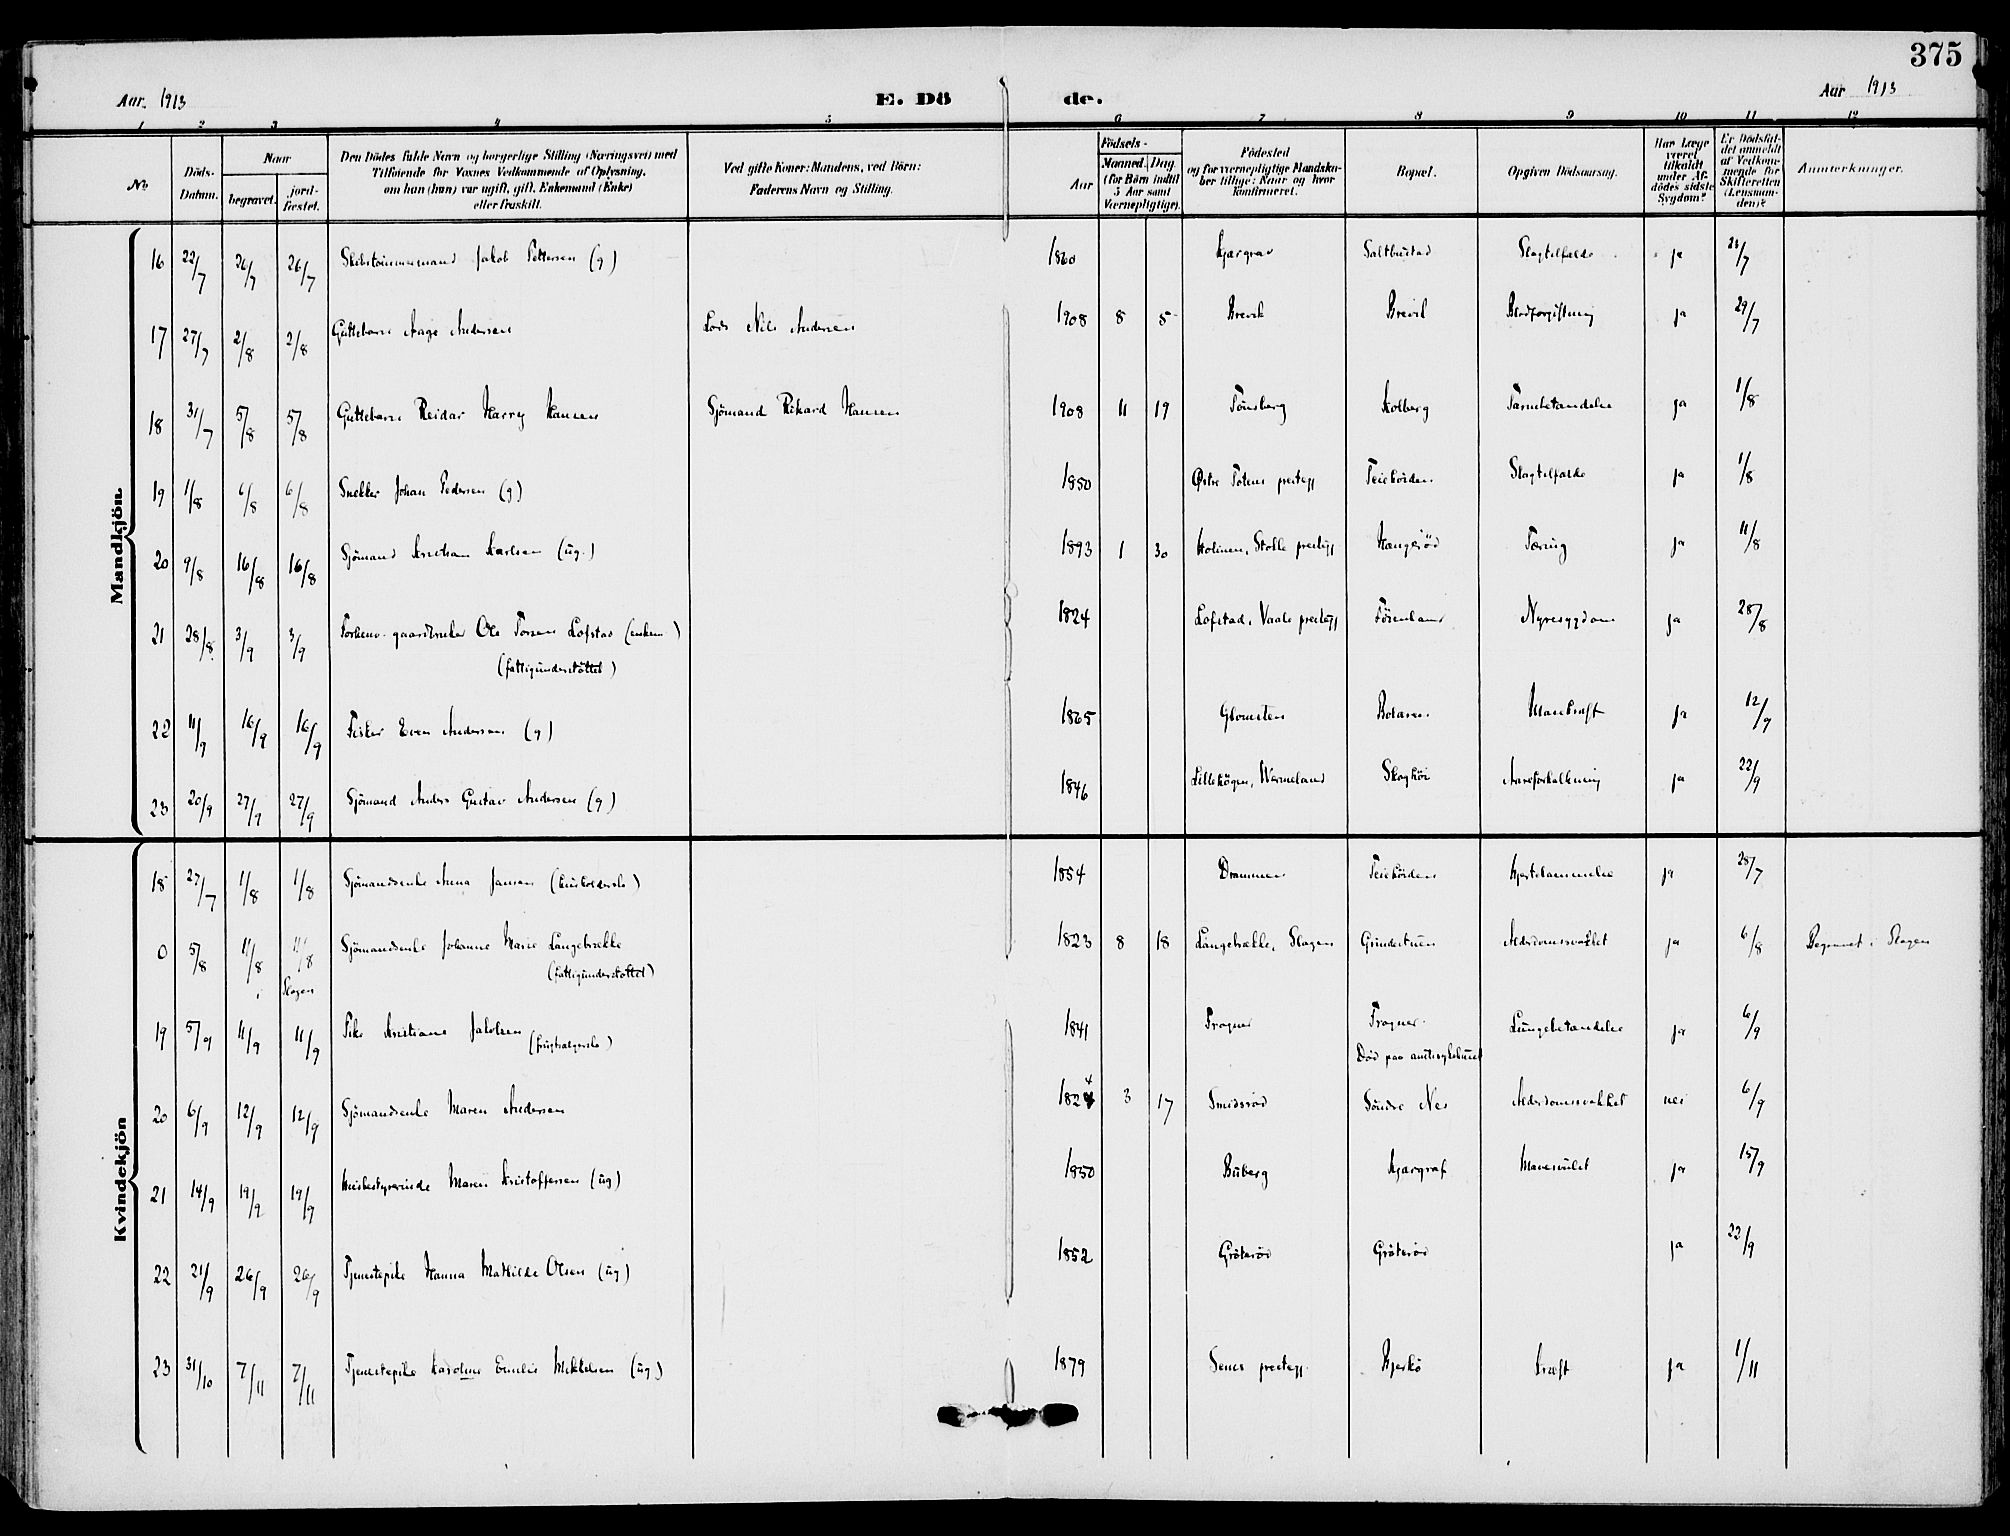 375
Aar. 1913
E. Dö de.
Aar 1913
1 2 3 4 5 6 7 8 9 10 11 12
No
Döds-Datum.
Naar
begravet.
jord-fæstet.
Den Dödes fulde Navn og borgerlige Stilling (Næringsvei) med
Tilföiende for Voxnes Vedkommende af Oplysning,
om han (hun) var ugift, gift, Enkemand (Enke)
eller fraskilt.
Ved gifte Koner: Mandens, ved Börn:
Faderens Navn og Stilling.
Födsels-
Aar
Maaned. Dag
(for Börn indtil
5 Aar samt
Værnepligtige).
Födested
og for værnepligtige Mandska-
ber tillige: Naar og hvor
konfirmeret.
Bopæl.
Opgiven Dödsaarsag.
Har Læge
været
tilkaldt
under Af-
dödes sidste
Sygdom?
Er Dödsfal-
det anmeldt
af Vedkom-
mende for
Skifteretten
(Lensman-
den)?
Anmærkninger.
Mandkjön.
16 22/7 26/7 26/7 Skibstömmermand Jakob Pettersen (g) 1860 Kjærgrav Saltbustad Slagtilfælde ja 23/7
17 27/7 2/8 2/8 Guttebarn Aage Andersen Lods Nils Andersen 1908 8 5 Brevik Brevik Blodforgiftning ja 29/7
18 31/7 5/8 5/8 Guttebarn Reidar Harry Hansen Sjömand Rikard Hansen 1908 11 19 Tönsberg Holberg Tarmbetændelse ja 1/8
19 1/8 6/8 6/8 Snekker Johan Pedersen (g) 1850 Østre Totens prestegj Teiehöiden Slagtilfælde ja 1/8
20 9/8 16/8 16/8 Sjömand Kristian Karlsen (ug.) 1893 1 30 Holmen, Stokke prestegj Haugeröd Tæring ja 11/8
21 28/8 3/9 3/9 Forhenv. gaardbruker Ole Torsen Lofstad (enkem.)
(fattigunderstöttet) 1824 Lofstad, Vaale prestegj Nyresygdom ja 28/8
22 11/9 16/9 16/9 Fisker Even Andersen (g) 1865 Glomsten Bolæren Mavekræft ja 12/9
23 20/9 27/9 27/9 Sjömand Anders Gustav Andersen (g) 1846 Wermeland Aareforkalkning ja 22/9
Kvindekjön
18 27/7 1/8 1/8 Sjömandsenke Anna Jansen (husholderske) 1854 Drammen Teiehöiden Hjertelammelse ja 28/7
0 5/8 11/8 11/8 Sjömandsenke Johanne Marie Langebrække
i Slagen (fattigunderstöttet) 1823 8 18 Langebrække, Slagen Grindstuen Alderdomssvakhet ja 6/8 Begravet i Slagen
19 5/9 11/9 11/9 Pike Kristiane Jakobsen
(frugtsælgerske) 1841 Trogner Trogner. Lungebetændelse ja 6/9
Död paa amtssykehuset
20 6/9 12/9 12/9 Sjömandsenke Maren Andersen 1824 3 17 Smidsröd Söndre Nes Alderdomssvakhet nei 6/9
21 14/9 19/9 19/9 Husbestyrerinde Maren Kristoffersen (ug) 1850 Buberg Kjærgraf Mavesvulst ja 15/9
22 21/9 26/9 26/9 Tjenestepike Hanna Mathilde Olsen (ug) 1852 Gröteröd Gröteröd ja 22/9
23 31/10 7/11 7/11 Tjenestepike Karoline Emilie Mikkelsen (ug.) 1879 Sems prestegj. Bjerkö Kræft ja 1/11